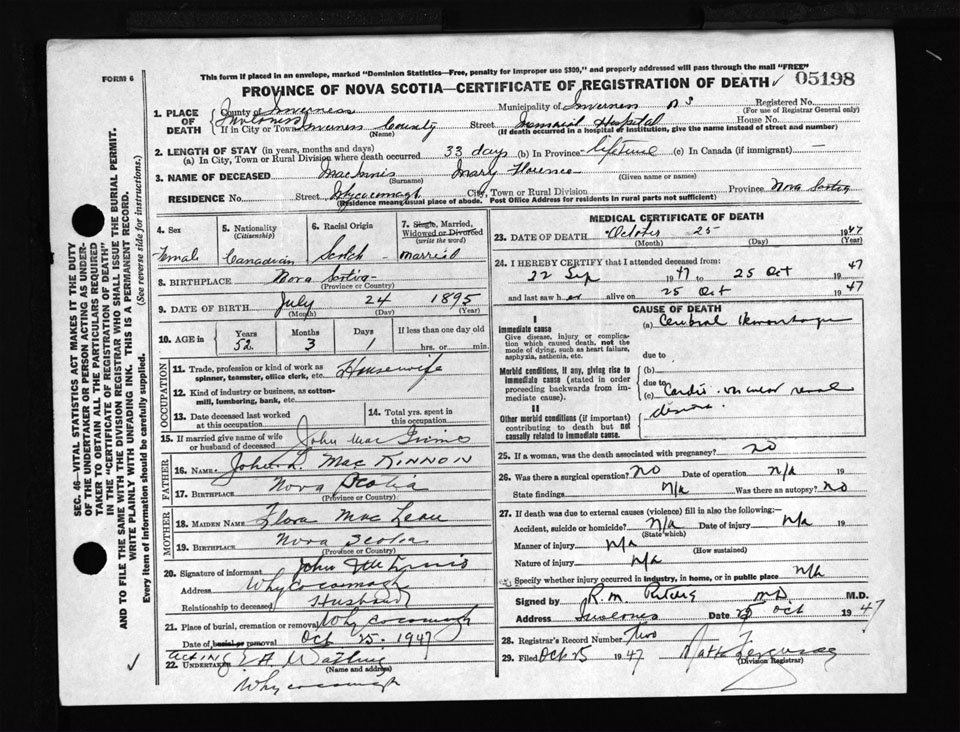 FORM 6
This form if placed in an envelope, marked "Dominion Statistics—Free, penalty for improper use $300," and properly addressed will pass through the mail "FREE"
PROVINCE OF NOVA SCOTIA—CERTIFICATE OF REGISTRATION OF DEATH 05198
1. PLACE OF DEATH
County of Inverness Municipality of Inverness Registered No.
(For use of Registrar General only)
If in City or Town Inverness County Street Memorial Hospital House No.
(Name) (If death occurred in a hospital or institution, give the name instead of street and number)
2. LENGTH OF STAY (in years, months and days)
(a) In City, Town or Rural Division where death occurred 33 days (b) In Province lifetime (c) In Canada (if immigrant) —
3. NAME OF DECEASED MacInnis Mary Florence
(Surname) (Given name or names)
RESIDENCE No. Street Whycocomagh City, Town or Rural Division Province Nova Scotia
(Residence means usual place of abode. Post Office Address for residents in rural parts not sufficient)
4. Sex Female
5. Nationality (Citizenship) Canadian
6. Racial Origin Scotch
7. Single, Married, Widowed or Divorced (write the word) married
8. BIRTHPLACE Nova Scotia
(Province or Country)
9. DATE OF BIRTH July 24 1895
(Month) (Day) (Year)
10. AGE in Years 52 Months 3 Days 1 If less than one day old hrs. or min.
OCCUPATION
11. Trade, profession or kind of work as spinner, teamster, office clerk, etc. Housewife
12. Kind of industry or business, as cotton-mill, lumbering, bank, etc.
13. Date deceased last worked at this occupation
14. Total yrs. spent in this occupation
15. If married give name of wife or husband of deceased John Mac Innis
FATHER
16. NAME John L. Mac KINNON
17. BIRTHPLACE Nova Scotia
(Province or Country)
MOTHER
18. MAIDEN NAME Flora Mac Lean
19. BIRTHPLACE Nova Scotia
(Province or Country)
20. Signature of informant John
Address Whycocomagh
Relationship to deceased Husband
21. Place of burial, cremation or removal Whycocomagh
Date of burial or removal Oct 25. 1947
ACTING
22. UNDERTAKER
(Name and address)
Whycocomagh
MEDICAL CERTIFICATE OF DEATH
23. DATE OF DEATH October 25 1947
(Month) (Day) (Year)
24. I HEREBY CERTIFY that I attended deceased from
22 Sep 1947 to 25 Oct 1947
and last saw her alive on 25 Oct 1947
CAUSE OF DEATH
I
Immediate cause
Give disease, injury or complication which caused death, not the mode of dying, such as heart failure, asphyxia, asthenia, etc.
(a) Cerebral Hemorrhage
due to
Morbid conditions, if any, giving rise to immediate cause (stated in order proceeding backwards from immediate cause).
(b)
due to
(c) renal disease.
II
Other morbid conditions (if important) contributing to death but not causally related to immediate cause.
25. If a woman, was the death associated with pregnancy? no
26. Was there a surgical operation? NO Date of operation N/a 19
State findings N/a Was there an autopsy? NO
27. If death was due to external causes (violence) fill in also the following:—
Accident, suicide or homicide? N/a Date of injury N/a 19
(State which)
Manner of injury N/a
(How sustained)
Nature of injury N/a
Specify whether injury occurred in industry, in home, or in public place N/a
Signed by R. M. MD M.D.
Address Inverness Date 25 Oct 1947
28. Registrar's Record Number Two
29. Filed Oct 25 1947
(Division Registrar)
SEC. 46—VITAL STATISTICS ACT MAKES IT THE DUTY OF THE UNDERTAKER OR PERSON ACTING AS UNDERTAKER TO OBTAIN ALL THE PARTICULARS REQUIRED IN THE "CERTIFICATE OF REGISTRATION OF DEATH" AND TO FILE THE SAME WITH THE DIVISION REGISTRAR WHO SHALL ISSUE THE BURIAL PERMIT.
WRITE PLAINLY WITH UNFADING INK. THIS IS A PERMANENT RECORD.
Every item of Information should be carefully supplied. (See reverse side for instructions.)